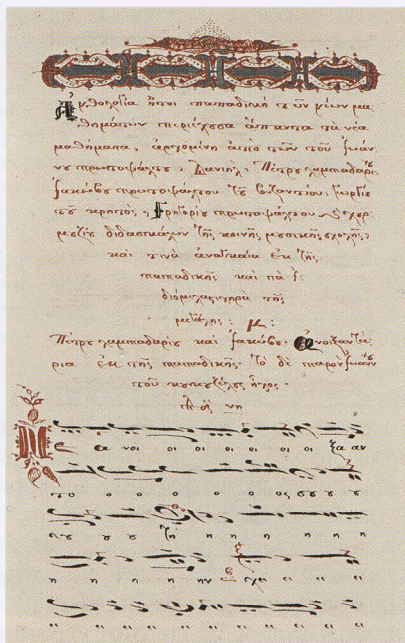 Ἀνθολογία ἤτοι παπαδικὴ τῶν νέων μα-
θημάτων περιέχουσα ἅπαντα τὰ νέα
μαθήματα, ἀρχομένη ἀπὸ τῶν τοῦ Ἰωάν-
νου πρωτοψάλτου, Δανιήλ, Πέτρου λαμπαδαρίου
Ἰακώβου πρωτοψάλτου τοῦ βυζαντίου, Γεωργίου
τοῦ κρητὸς, Γρηγορίου πρωτοψάλτου
διδασκάλων τῆς κοινῆς μουσικῆς σχολῆς,
καὶ τινὰ ἀναγκαῖα ἐκ τῆς
παπαδικῆς καὶ
τῆς
μεγάλης :
Πέτρου λαμπαδαρίου καὶ Ἰακώβου. Ἀνοιξαντά-
ρια ἐκ τῆς παπαδικῆς. Τὸ δὲ παρὸν Ἰωάννου
τοῦ κουκουζέλους ἦχος
νη
α νοι οι οι οι οι οι ξα αν
το ο ο ο ο ο ος σου ου
ου ου ου τη η η η η η
η η η η ην χει ει ει ει
ει ει ει ει ει ει ει ει